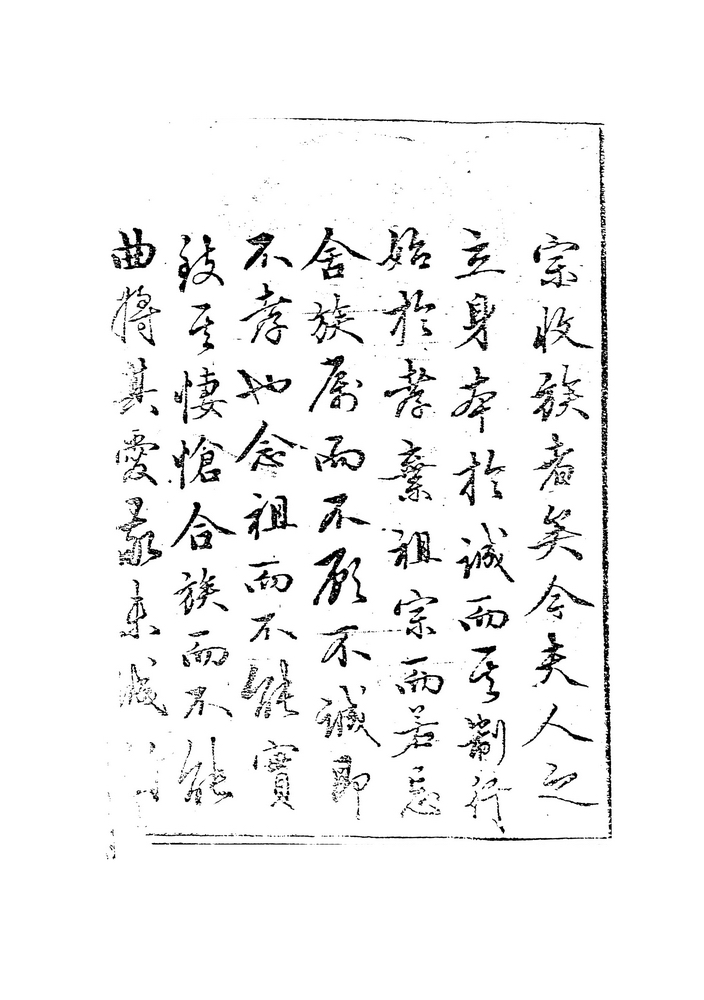 宗收族者矣今夫人之
立身本於誠而其制行
始於孝棄祖宗而若忘
舍族属而不顧不誠即
不孝也念祖而不能實
致其悽愴合族而不能
曲將其愛敬未誠